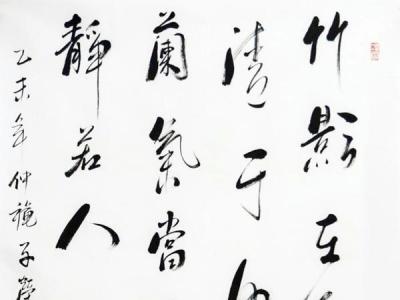 竹影在
清于
蘭氣當
靜若人
乙未年仲穐子